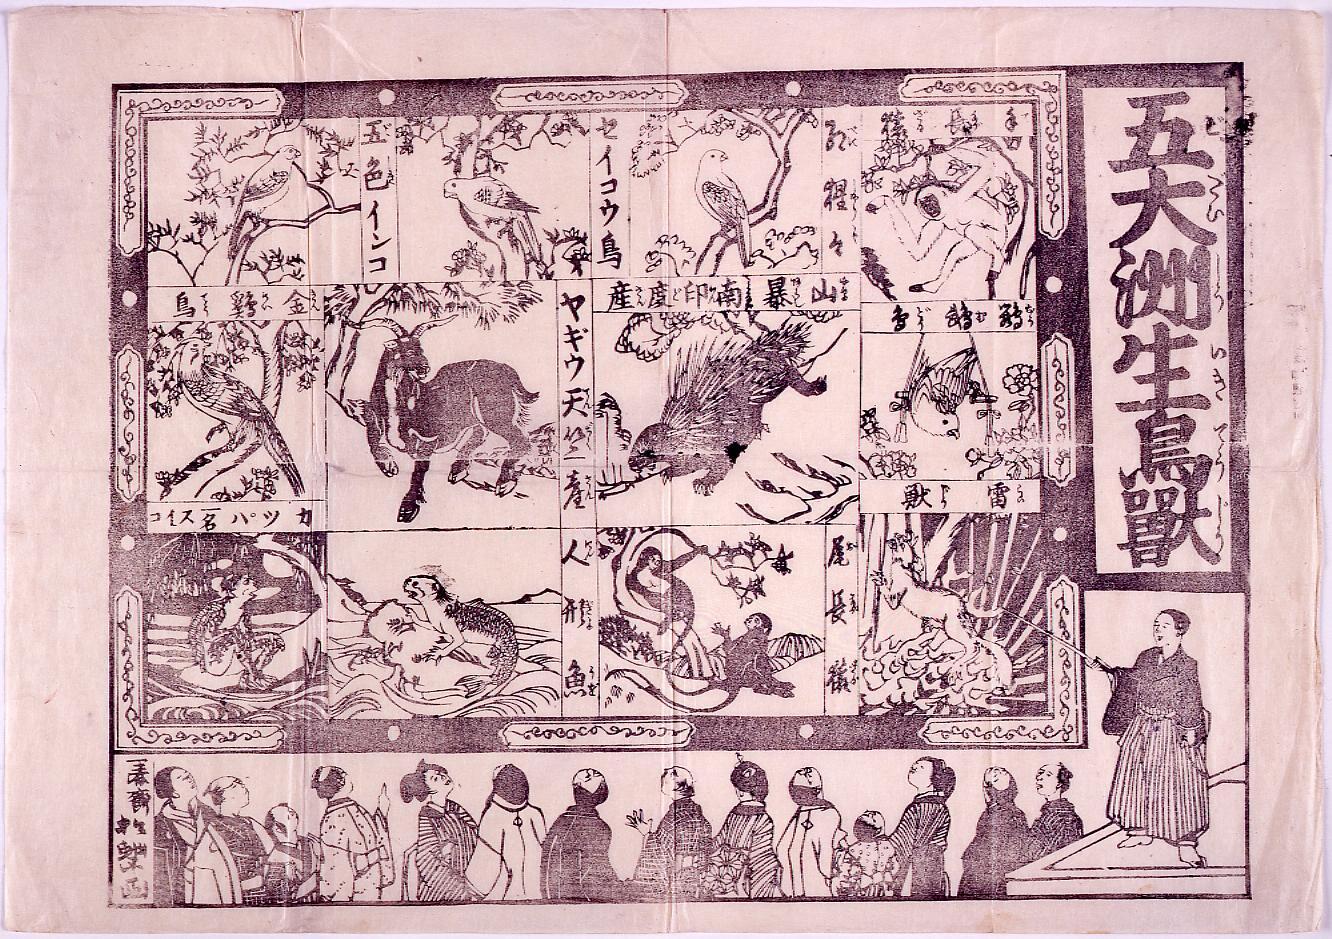 五大洲生鳥獸
手長猿
猩々
セイコウ鳥
五色インコ
鸚鵡鳥
山暴南印度産
ヤギウ天竺産
金鷄鳥
雷獸
尾長猿
人形魚
カツパ一名スイコ